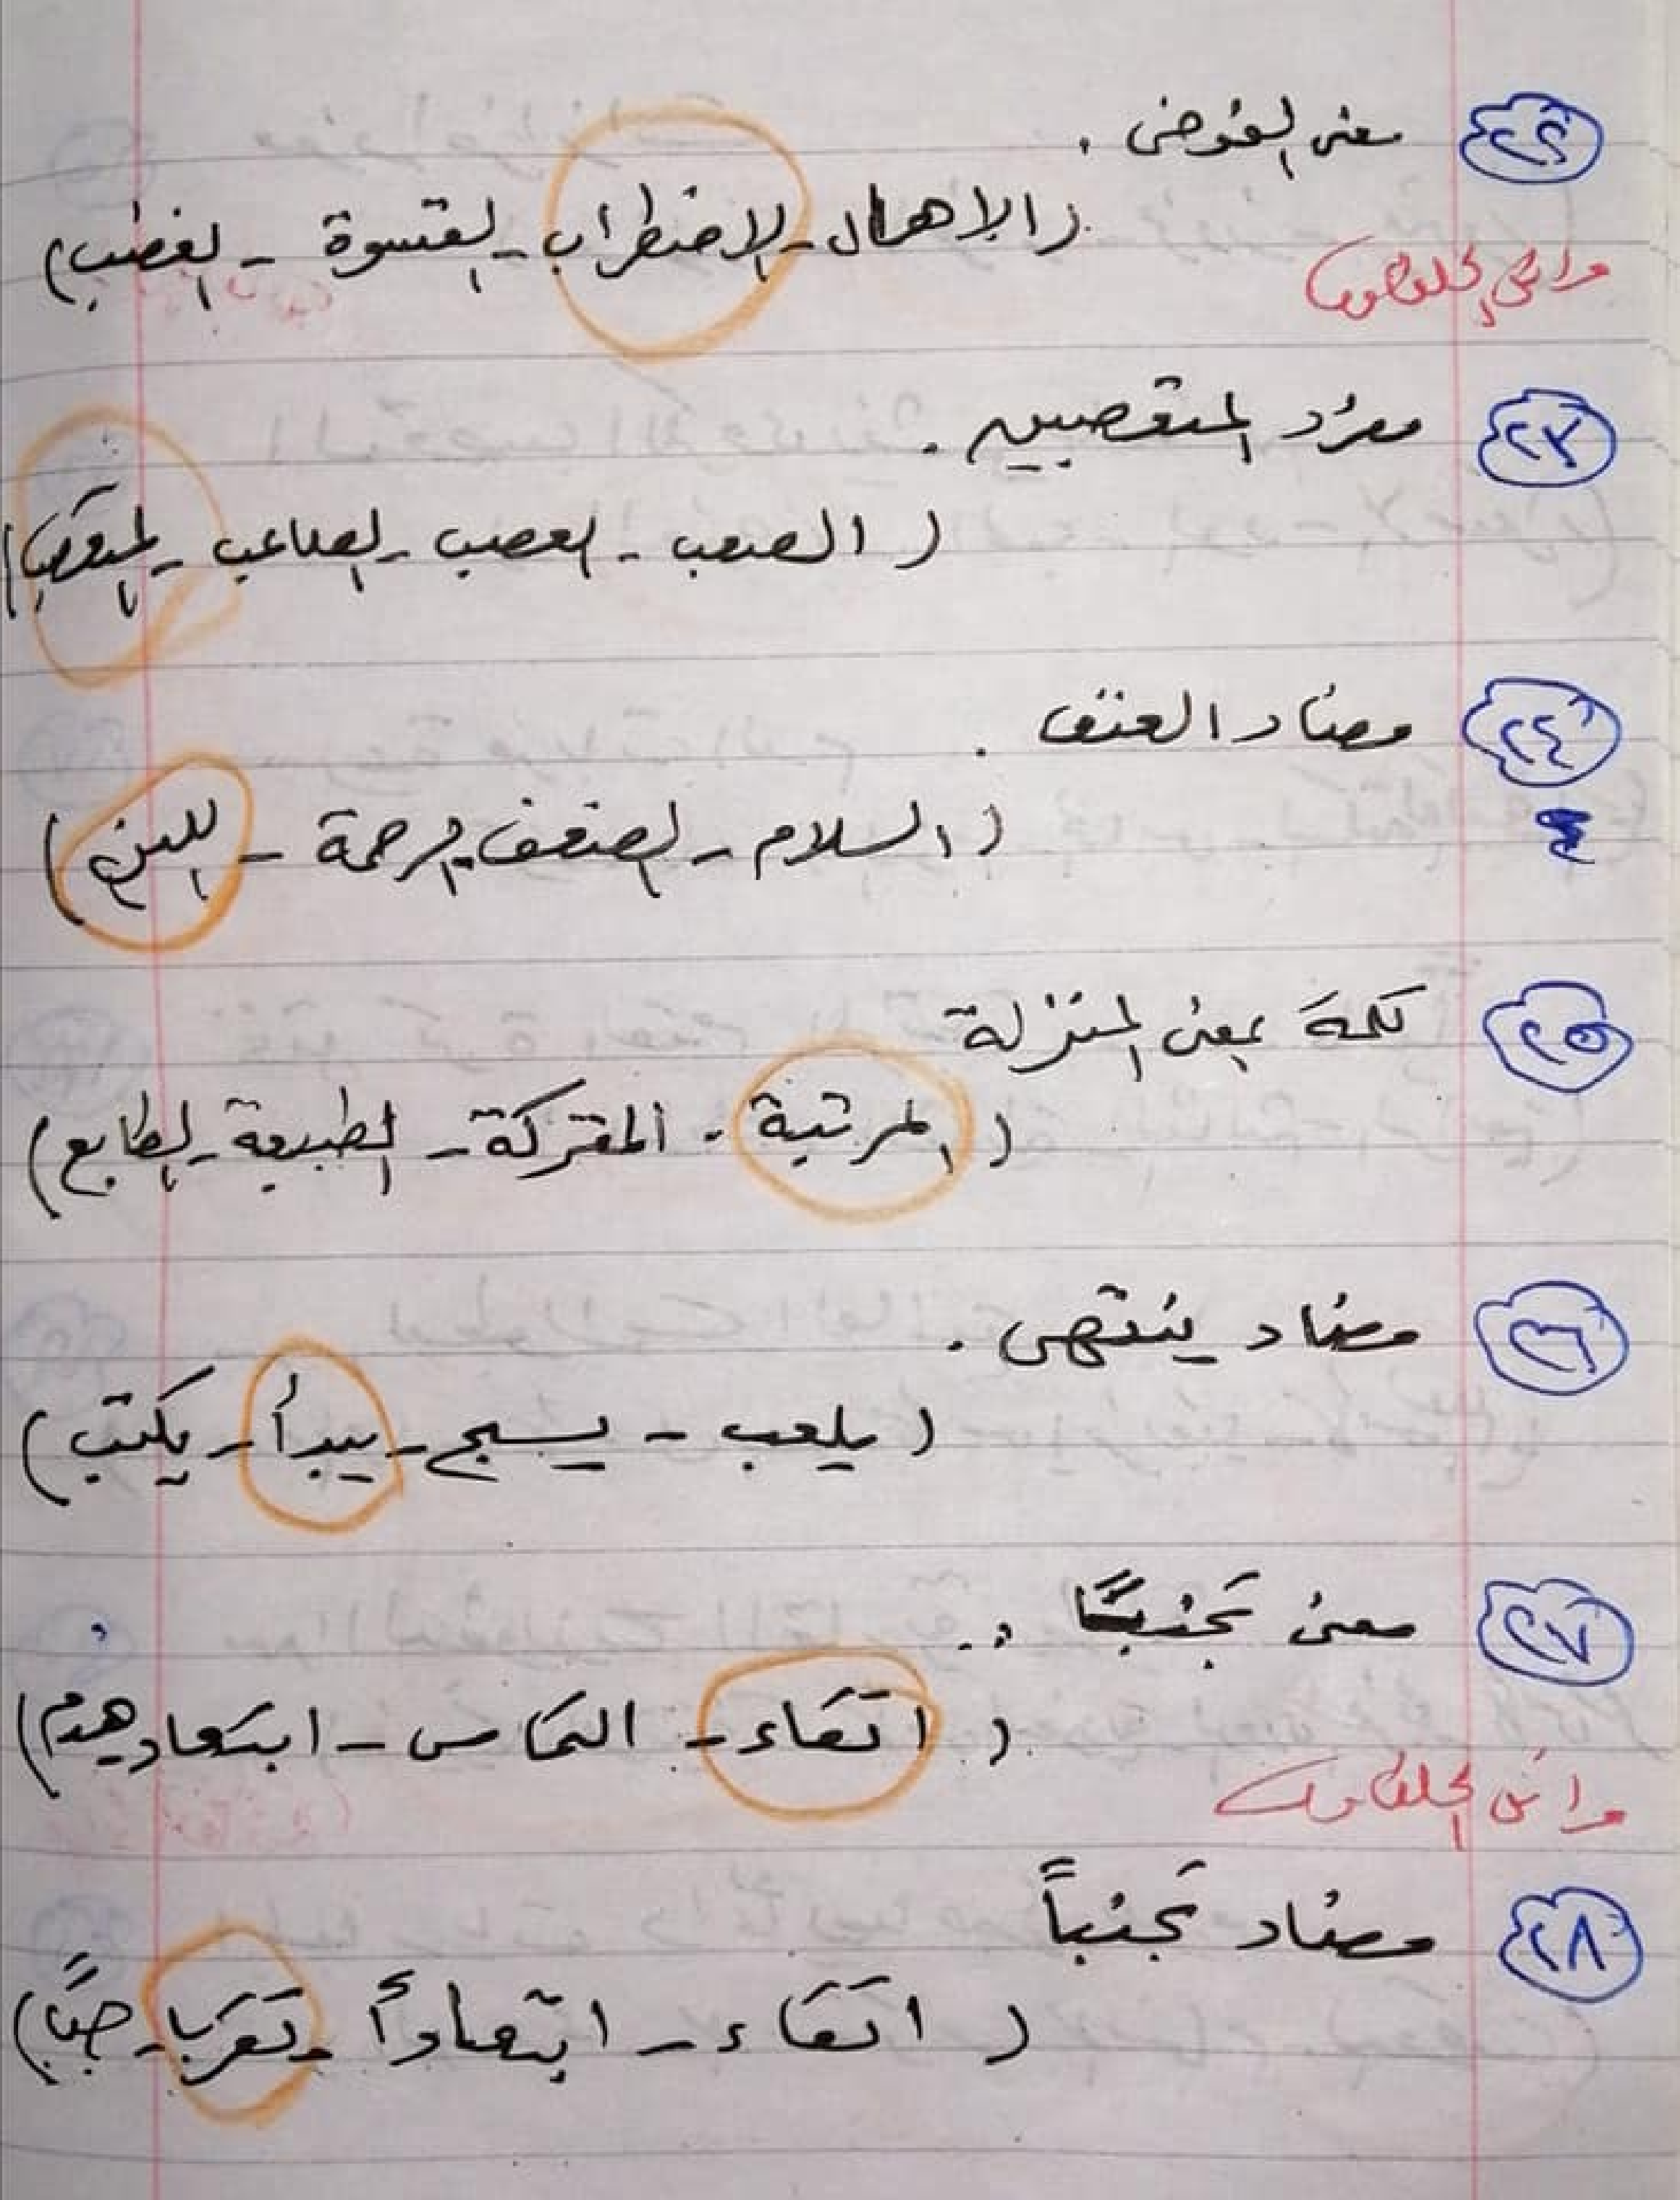 ٢٢ معنى الفوضى .
(الإهمال - الاضطراب - القسوة - الغضب)
٢٣ مفرد المتعصبين .
( الصعب - العصب - الصاعب - المتعصب)
٢٤ مضاد العنف .
( السلام - الضعف - الرحمة - اللين )
٢٥ كلمة بمعنى المنزلة
( المرتبة - المعركة - الطبيعة - الطابع )
٢٦ مضاد ينتهى .
( يلعب - يسبح - يبدأ - يكتب )
٢٧ معنى تجنبًا ..
( اتقاء - التماس - ابتعاد - هدم)
٢٨ مضاد تجنباً
( اتقاء - ابتعادأ - تقربا - حبًا)